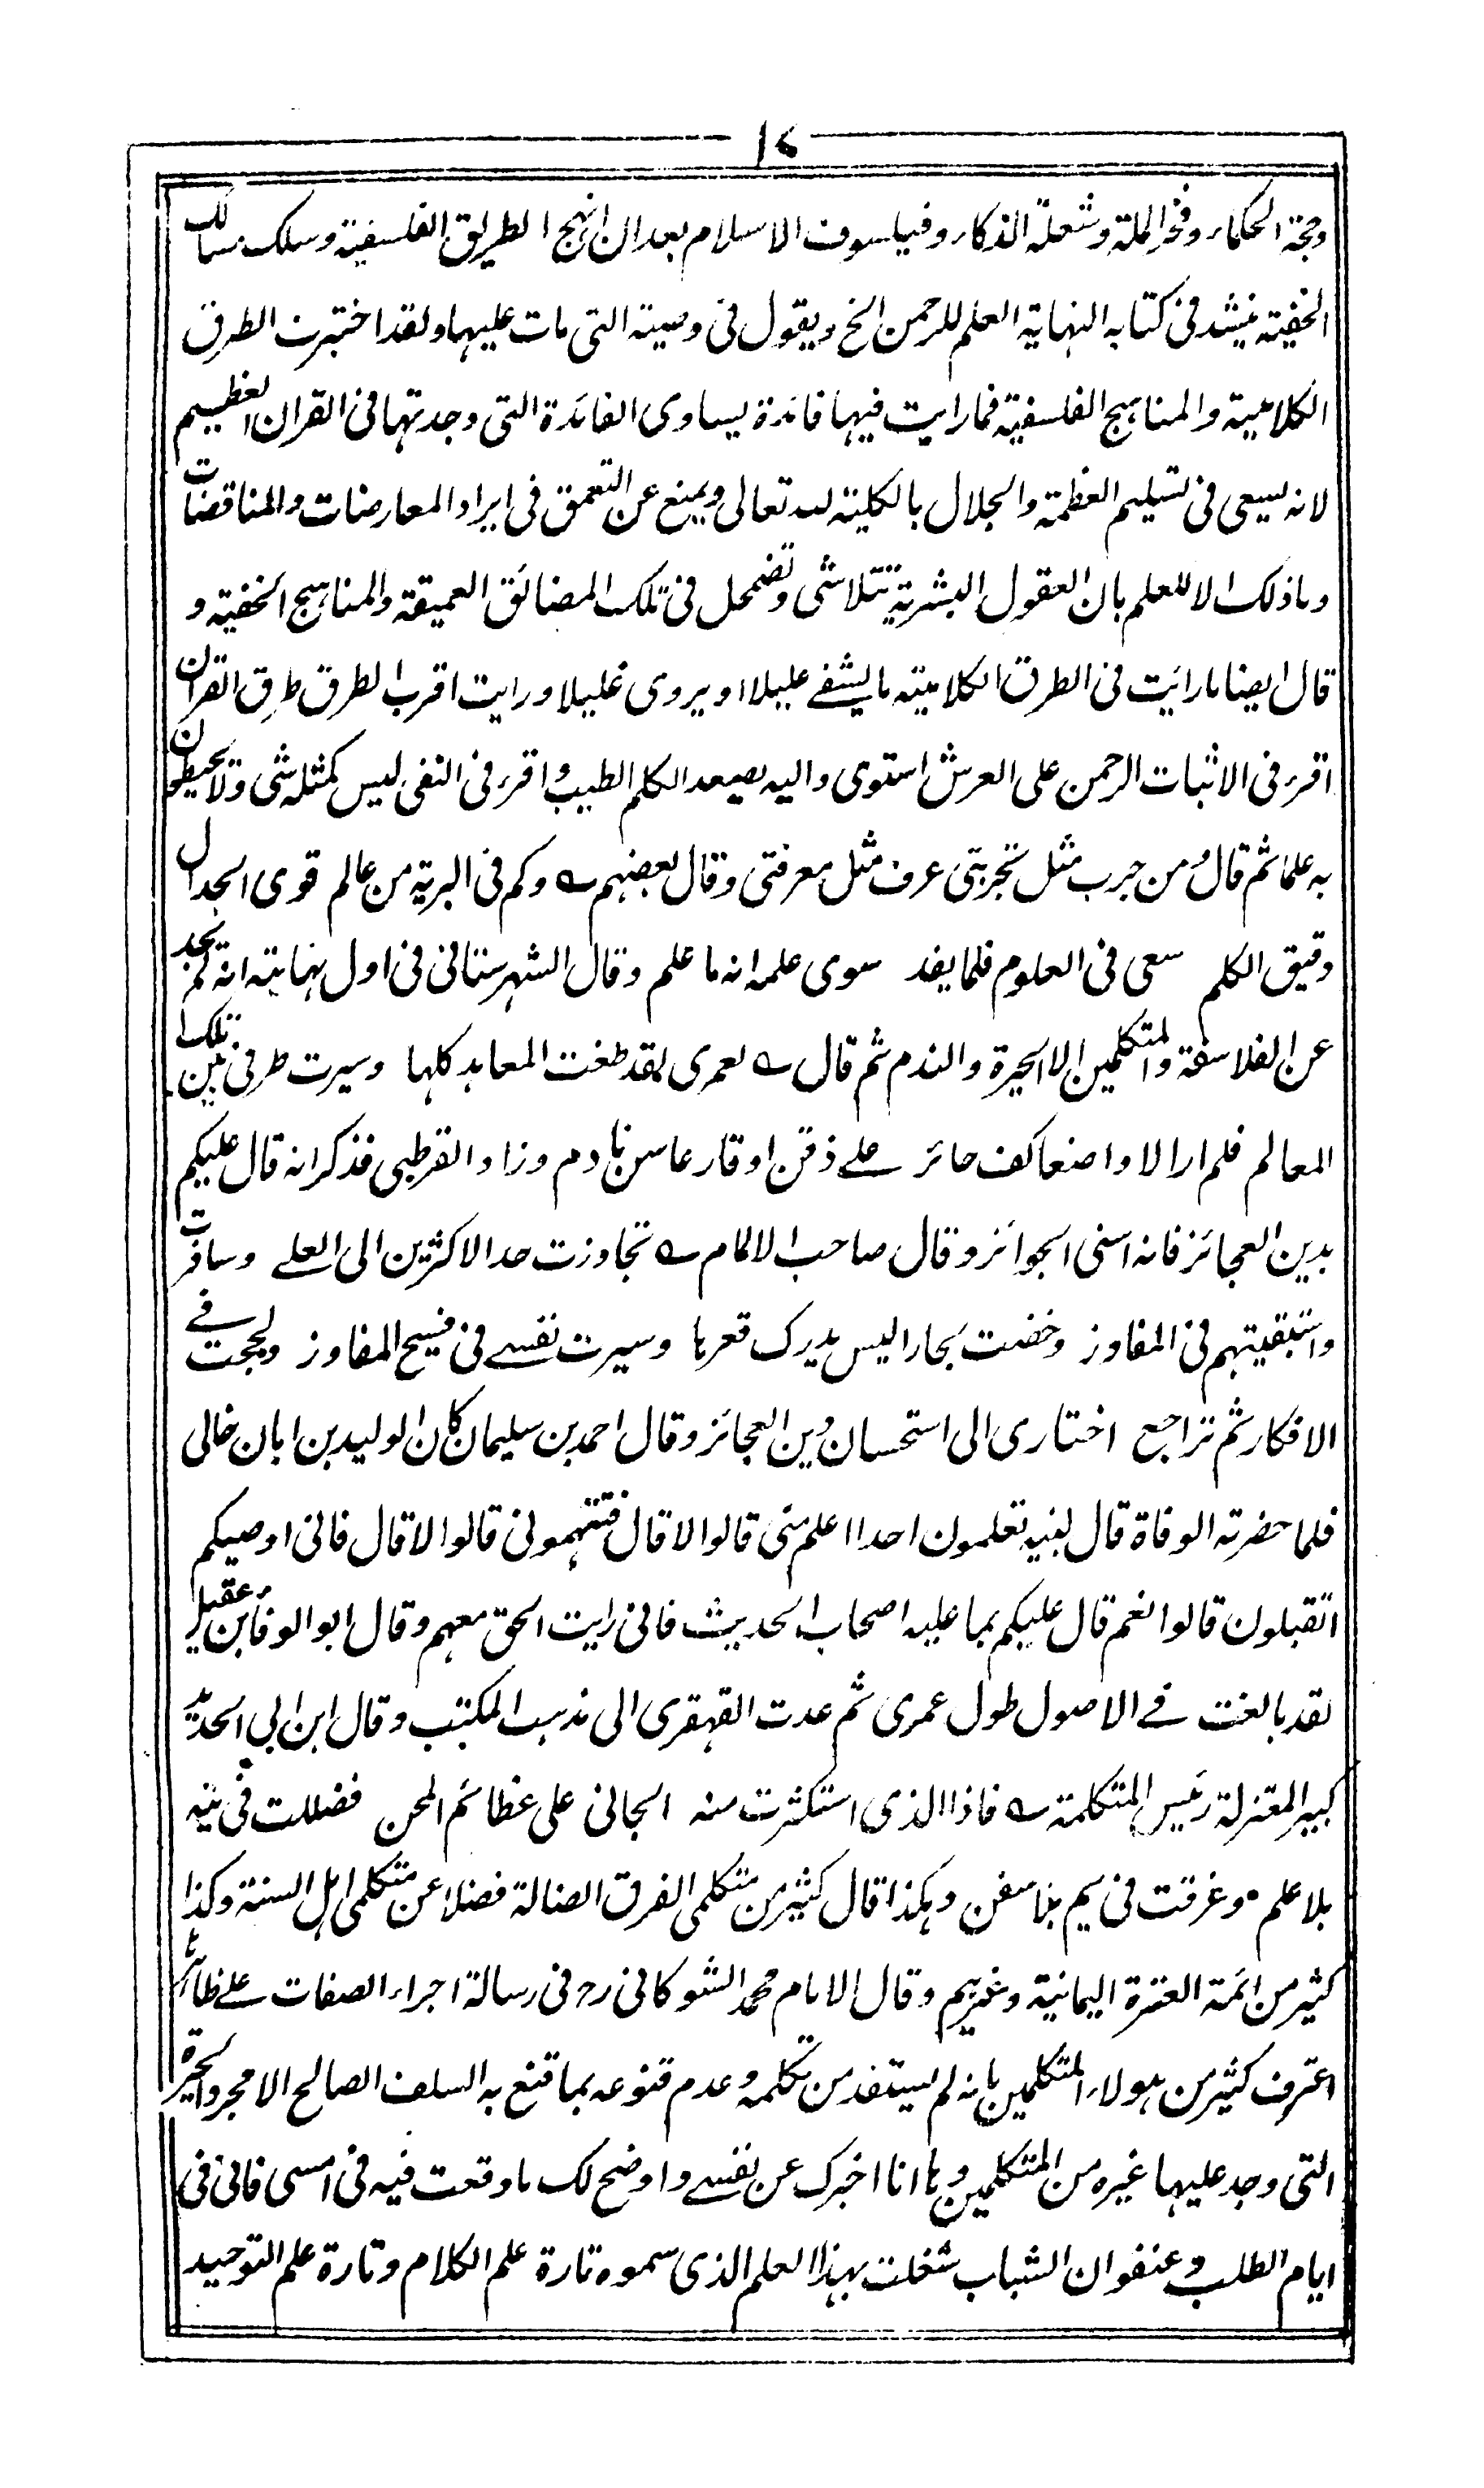 ١٤
وحجة الحكماء وفخر الملة وشعلة الذكاء وفيلسوف الاسلام بعد ان انهج الطريق الفلسفية وسلك مسالك
الخفية ينشد فى كتابه النهاية العلم للرحمن الخ ويقول فى وصيته التى مات عليها ولقد اختبرت الطرق
الكلامية والمناهج الفلسفية فما رايت فيها فائدة يساوى الفائدة التى وجدتها فى القران العظيم
لانه يسعى فى تسليم العظمة والجلال بالكلية لله تعالى ويمنع عن التعمق فى ايراد المعارضات والمناقضات
وما ذلك الا للعلم بان العقول البشرية تتلاشى وتضمحل فى تلك المضائق العميقة والمناهج الخفية و
قال ايضا ما رايت فى الطرق الكلامية ما يشفے عليلا او يروى غليلا ورايت اقرب الطرق طرق القران
اقرء فى الاثبات الرحمن على العرش استوى واليه يصعد الكلم الطيب واقرء فى النفى ليس كمثله شى ولا يحيطون
به علما ثم قال ومن جرب مثل تجربتى عرف مثل معرفتى وقال بعضهم ؎ وكم فى البرية من عالم قوى الجدال
دقيق الكلم سعى فى العلوم فلما يفد سوى علمه انه ما علم وقال الشهرستانى فى اول نهايته انه لم يجد
عن الفلاسفة والمتكلمين الا الحيرة والندم ثم قال ؎ لعمرى لقد طفت المعاهد كلها وسيرت طرفى بين تلك
المعالم فلم ار الا واضعا كف حائر علے ذقن او قارعا سن نادم وزاد القرطبى فذكر انه قال عليكم
بدين العجائز فانه اسنى الجوائز وقال صاحب الاكام ؎ تجاوزت حد الاكثرين الى العلے وسافرت
واستبقيتهم فى المفاوز وخضت بحارا ليس يدرك قعرها وسيرت نفسے فى فسيح المفاوز ولججت فے
الافكار ثم تراجع اختيارى الى استحسان دين العجائز وقال احمد بن سليمان كان الوليد بن ابان خالى
فلما حضرته الوفاة قال لبنيه تعلمون احدا اعلم منى قالوا لا قال فتتهمونى قالوا لا قال فانى اوصيكم
اتقبلون قالوا نعم قال عليكم بما عليه اصحاب الحديث فانى رايت الحق معهم وقال ابو الوفا بن عقيل
لقد بالغت فے الاصول طول عمرى ثم عدت القهقرى الى مذهب المكتب وقال ابن ابى الحديد
كبير المعتزلة رئيس المتكلمة ؎ فاذا الذى استكثرت منه الجانى على عظائم المحن فضللت فى تيه
بلا علم وغرقت فى يم بلا سفن وهكذا قال كثير من متكلمى الفرق الضالة فضلا عن متكلمى اهل السنة وكذا
كثير من ائمة العترة اليمانية وغيرهم وقال الامام محمد الشوكانى رح فى رسالة اجراء الصفات علے ظاهرها
اعترف كثير من هولاء المتكلمين بانه لم يستفد من تكلمه وعدم قنوعه بما قنع به السلف الصالح الا مجرد الحيرة
التى وجد عليها غيره من المتكلمين وها انا اخبرك عن نفسے واوضح لك ما وقعت فيه فى امسى فانى فى
ايام الطلب وعنفوان الشباب شغلت بهذا العلم الذى سموه تارة علم الكلام وتارة علم التوحيد